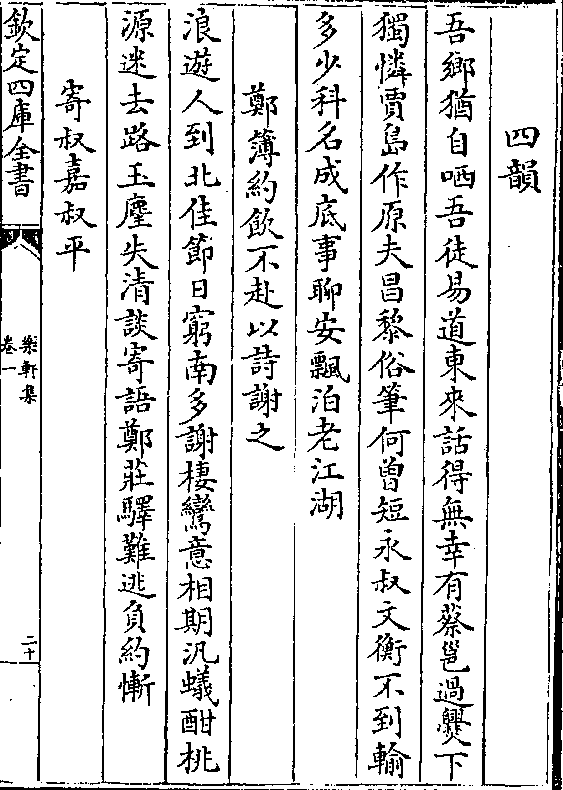 四韻
吾鄉猶自哂吾徒易道東來話得無幸有蔡邕過㸑下
獨憐賈島作原夫昌黎俗筆何曾短永叔文衡不到輸
多少科名成底事聊安飄泊老江湖
鄭簿約飲不赴以詩謝之
浪遊人到北佳節日窮南多謝棲鸞意相期汎蟻酣桃
源迷去路玉麈失清談寄語鄭莊驛難逃負約慚
寄叔嘉叔平
欽定四庫全書
樂軒集
卷一
二十